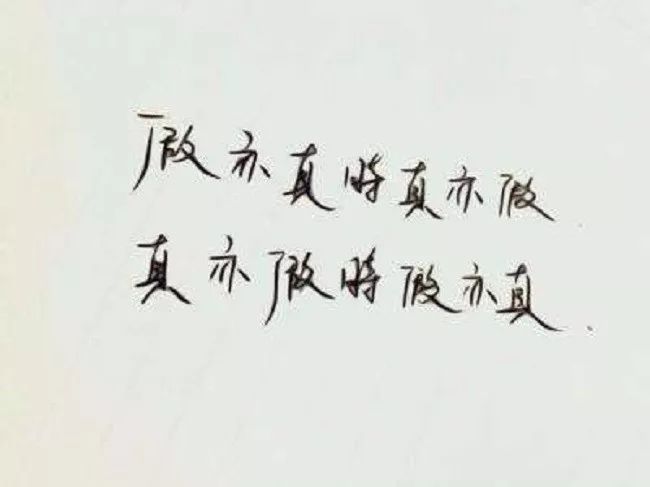 假亦真時真亦假
真亦假時假亦真.